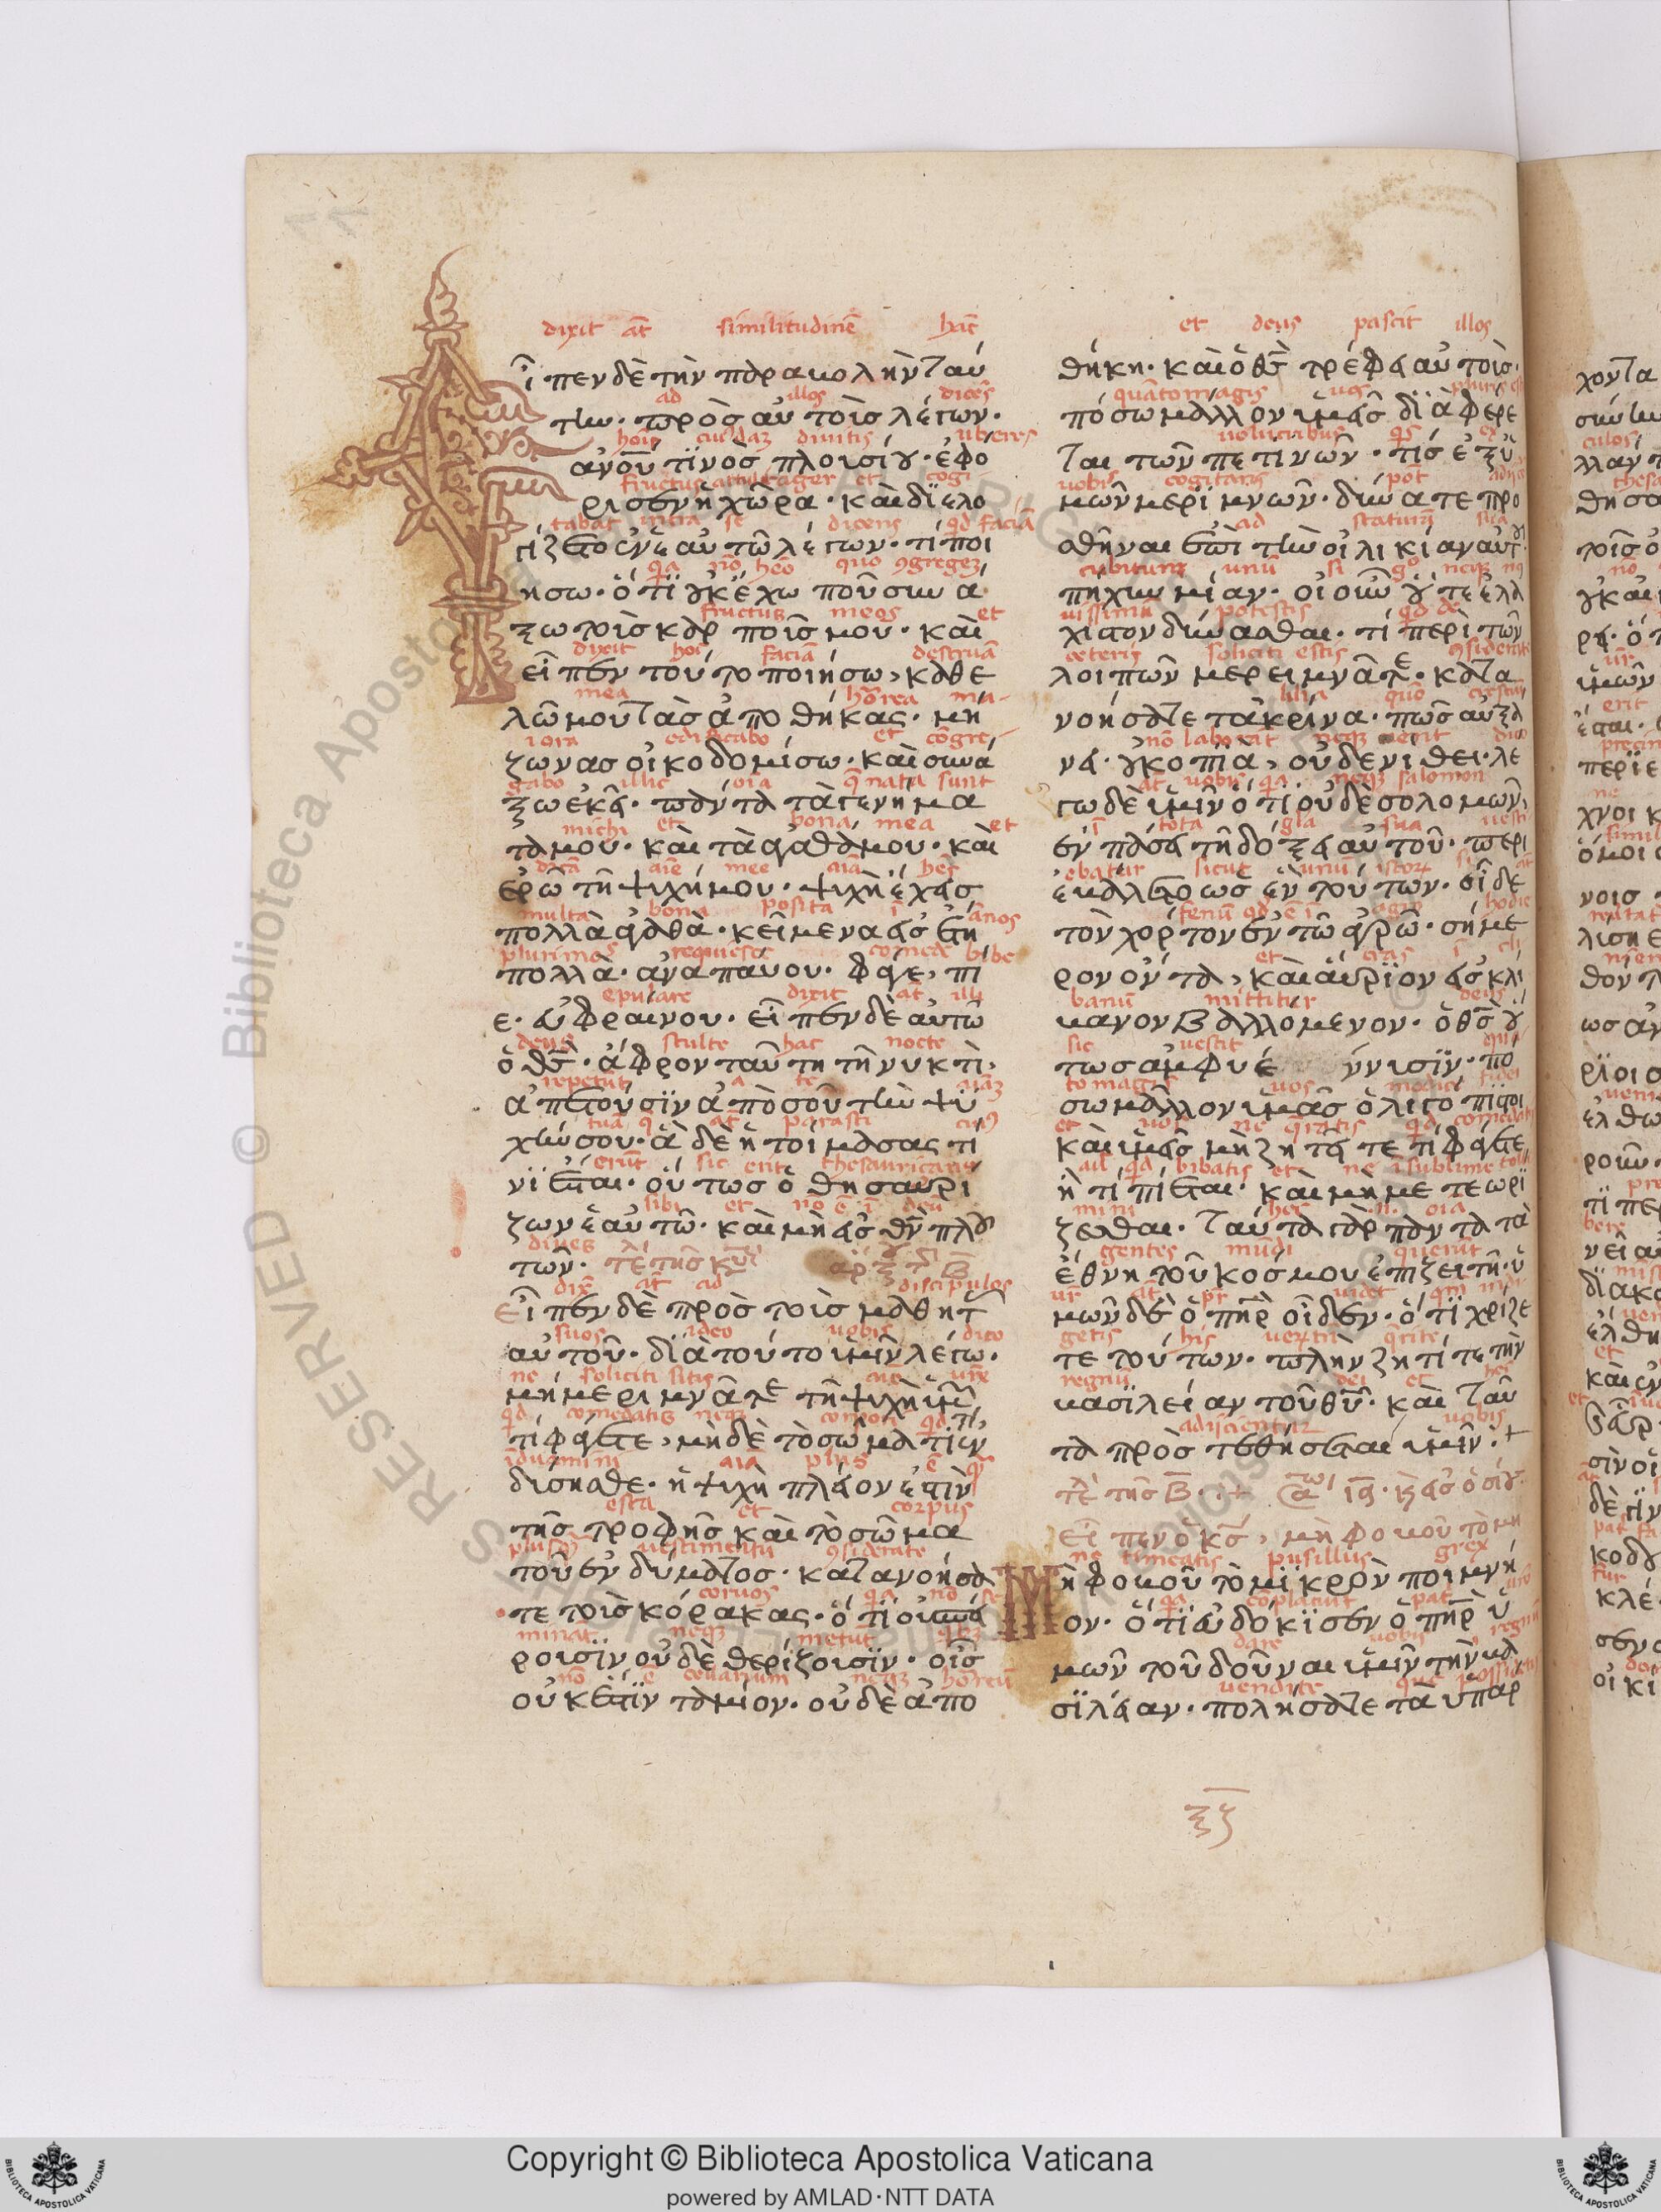 dixit at similitudinē hāc
ἶπεν δὲ τὴν παραβολὴν ταύ
ad illos dicēs
την· πρὸσ αὐτοὶσ λέγων·
hois cuiusdaz diuitis uberes
ἀνου τῒνοσ πλουσίου· ἐφο
fructus attulit ager et cogi
ρισεν ἡ χῶρα· καὶ διελο
tabat intra se dicens qd faciā
γίζετο ἐν ἑαὐτῶ λέγων· τί ποι
qa nō heō quo ɔgregez
ησω· ὅτϊ οὐκ ἔχω ποῦ συνά
fructus meos et
ξω τοὺσ καρποῖσ μου· καὶ
dixit hoc faciā destruā
εἶπεν τοῦτο ποιήσω, καθε
mea hōrea ma-
λῶ μου τὰσ ἀποθήκας· μή
iora edificabo et cōgre-
ζωνασ οἰκοδομίσω· καὶ συνά
gabo illic oīa q̄ nata sunt
ξω ἐκεῖ· πάντα τὰ γενήμα
michi et bona mea et
τά μου· καὶ τὰ ἀγαθά μου· καὶ
dicā aīe mee aiā hēs
ἐρῶ τῆ ψιχή μου· ψιχὴ ἔχεισ
multa bona posita ī ānos
πολλὰ ἀγαθὰ· κεῖμενα εἰσ ἔτη
plurimos requiesce comede bibe
πολλὰ· ἀναπαυου· φαγε, πί
epulare dixit at illi
ε· εὐφραίνου· εἶπεν δὲ αυτῶ
deus stulte hac nocte
ὁ θσ· ἄφρον ταῦτη τῆ νυκτὶ·
repetūt a te aīaz
ἀπετούσϊν ἀπὸ σοῦ τὴν ψῦ
tuā q at parasti cui9
χήν σου· ἃ δὲ ἡτοίμασας τί
erūt sic erit thesaurizans
νϊ ἔσται· οὕτωσ ὁ θησαυρι
sibi et nō ē ī deū
ζων ἑαὐτῶ· καὶ μὴ εἰσ θν πλου
diues
τῶν· τέ τῆσ κυ ἀρξ τ β
dix at ad discipulos
Εἶπεν δὲ πρὸσ τοὺσ μαθητ
suos ideo uobis dico
αὐτοῦ· δϊὰ τούτο ὑμῖν λέγω·
ne soliciti sitis aīe urē
μή μεριμνᾶτε τῆ ψιχὴ ὑμ
qd comedatis neqz corpori qd
τί φάγετε, μηδὲ τὸ σῶμα τί ἐν
iduamini aīa plus ē q
δίσησθε· ἡ ψιχὴ πλεῖον ἐστὶν
esca et corpus
τῆσ τροφῆσ καὶ τὸ σῶμα
plusq uestimentū ɔsiderate
τοῦ ἐνδύματοσ· κατανοήσα
coruos qa nō se
τε τοὺσ κόρακας· ὅτϊ οὐ σπεί
minat neqz metūt
ρουσϊν οὐδὲ θερίζουσϊν· οἷσ
nō ē cellarium neqz hōreū
οὐκ ἔστϊν ταμίον· οὐδὲ ἀπο
et deus pascit illos
θήκη· καὶ ὁ θσ τρέφει αὐτοὶσ·
quātomagis uos pluris
πόσω μᾶλλον ὑμεῖσ δϊὰφερε
uolucribus qs ex
ται τῶν πετινῶν· τίσ ἐξ ὑ
uobis cogitans pōt
μῶν μεριμνῶν· δύνατε προ
ad staturā suā
σθῆναι ἐπὶ τὴν οἱλικίαν αυτοῦ
cubitum unū si g neqz
πῆχυν μίαν· οἱ οὖν οὔτε ἐλά
uissimū potestis qd de
χιστον δύνασθαι· τί περὶ τῶν
ceteris soliciti estis ɔsiderate
λοιπῶν μερειμνᾶτε· κατα
lilia quō crescūt
νοήσατε τὰ κρίνα· πῶσ αὐξά
nō laborat neqz nent dico
νει· οὐ κοπϊὰ, οὐδὲ νιθει· λε
at uobis qa neqz salomon
γω δὲ ὑμῖν ὅτι οὐδὲ σολομῶν,
ī tota gla sua uesti
ἐν πάσει τῆ δόξει αὐτοῦ· περι
ebatur sicut unū istoz si at
εβάλετο ωσ ἓν τούτων· εἶ δε
fenū qd ē ī agro hodie
τὸν χόρτον ἐν τῶ ἀγρῶ· σήμε
et cras ī cli
ρον ὄντα, καὶ ἄυρϊον εἰσ κλί
banū mittitur deus
βανον βαλλόμενον· ὁ θσ οὕ
sic uestit
τωσ αμφυέ ννυισϊν· πο
to magis uos modice fidei
σω μᾶλλον ὑμᾶσ ὀλιγόπιστοι
et uos ne qratis qd comedatis
καὶ ὑμεῖσ μὴ ζητεῖτε τί φάγετε,
aut qd bibatis et ne ī sublime tolli
ἢ τί πίεται· καὶ μὴ μετεωρί
mini hec n oīa
ζεσθαι· ταύτα γὰρ πάντα τὰ
gentes mūdi querūt
ἔθνη τοῦ κόσμου ἐπιζειτῆ· ὑ
ur at pr uidet qm indi
μῶν δὲ ὁ πηρ οἶδεν· ὅτϊ χρίζε
getis his ueztn qrite
τε τούτων· πλὴν ζητίτε τὴν
regnū dei et hec
βασϊλείαν τοῦ θυ· καὶ ταῦ
adiscientur uobis
τα πρὸσ τεθήσεται ὑμῖν.+
τέ τῆσ β·+
εἶπεν ὁ κσ, μὴ φοβοῦ τὸ μη
ne timeatis pusillus grex
Μὴ φοβοῦ τὸ μϊκρὸν ποιμνή
qa cōplacuit pat
ον· ὅτϊ εὐδόκϊσεν ὁ πηρ ὑ
dare uobis regnū
μῶν τοῦ δοῦναι ὑμῖν τὴν βα
uendite que
σϊλείαν· πολήσατε τὰ υπάρ
ξζ
Copyright © Biblioteca Apostolica Vaticana
powered by AMLAD·NTT DATA